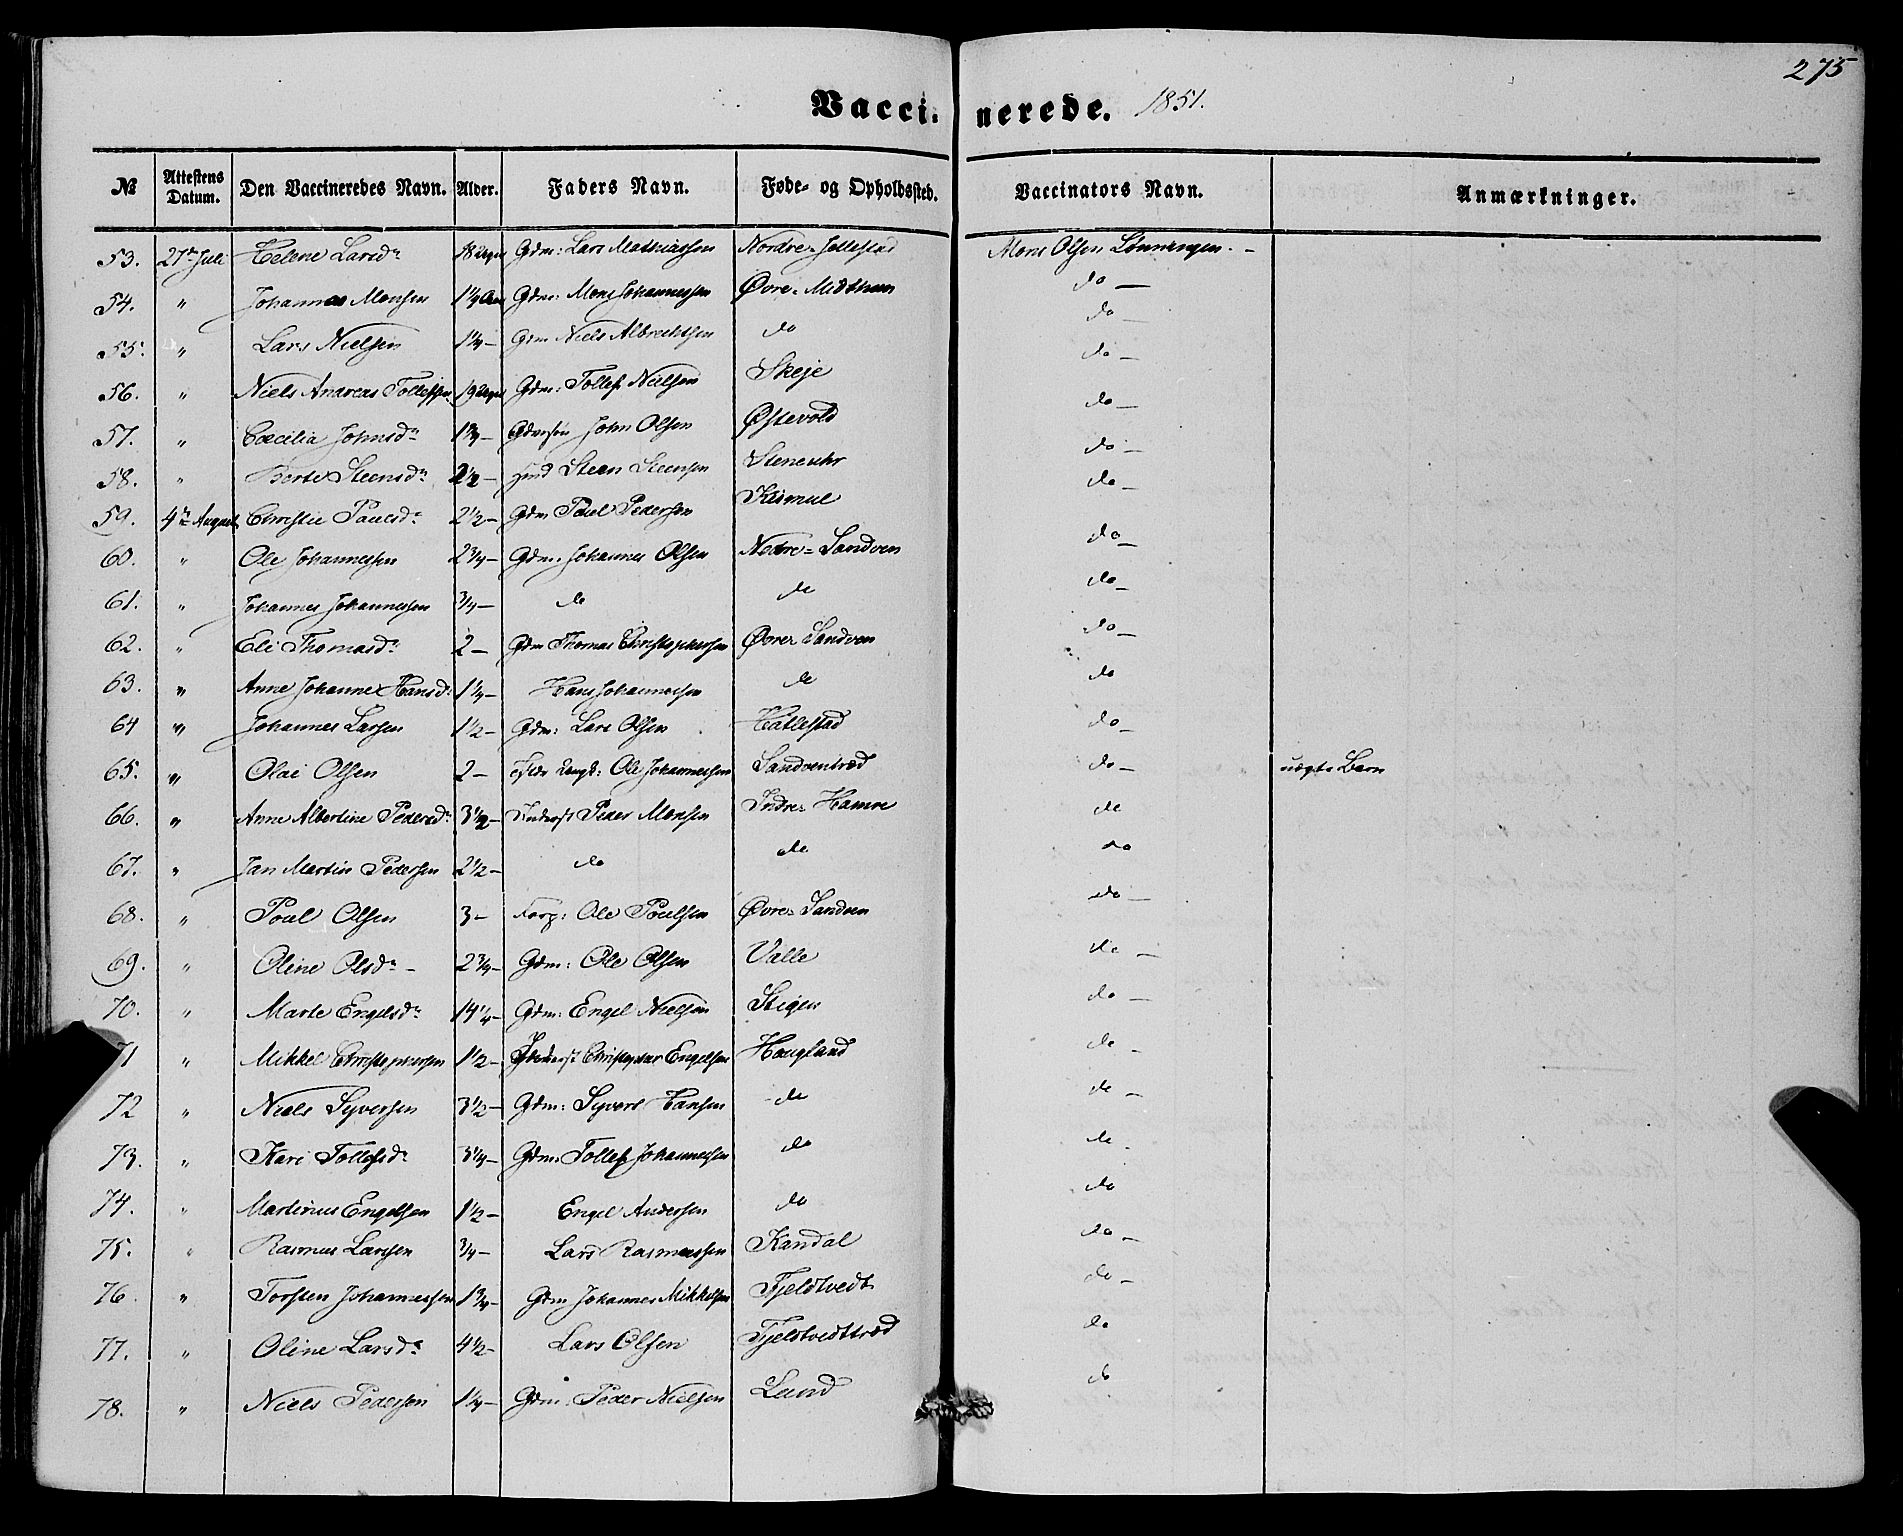 275
Vaccinerede. 1851.
№ Attestens Datum. Den Vaccineredes Navn. Alder. Faders Navn. Føde- og Opholdssted. Vaccinators Navn. Anmærkninger.
53. 27de Juli Helene Larsdr 18 Uger Gdm: Lars Mathiassen Nordre- Mons Olsen Lønningen. –
54. " Johannes Monsen 1¼ Aar Gdm: Mons Johannessen Øvre- Midthun do –
55. " Lars Nielsen 1¼ – Gdm Niels Albrechtsen do do –
56. " Niels Andreas Tollefsen 19 Uger Gdm: Tollef Nielsen Skeje do –
57. " Cæcilia Johnsdr 1¾ – John Olsen Østevold do –
58. " Berte Steensdr 2½ – Steen Steensen do –
59. 4de August Christie Poulsdr 2½ – Gdm Poul Pedersen Kismul do –
60. " Ole Johannessen 2¾ – Gdm: Johannes Olsen Nedre = Sandven do –
61. " Johannes Johannessen ¾ – do do do –
62. " Eli Thomasdr 2 – Gdm Thomas Christophersen Øvre= Sandven do –
63. " Anne Johanne Hansdr 1¼ – Hans Johannessen do do
64 " Johannes Larsen 1½ – Gdm: Lars Olsen Hatlestad do –
65. " Olai Olsen 2 – Ole Johannessen Sandventræd do – uægte Barn
66. " Anne Albertine Pedersdr 3½ – Inderst Peder Monsen Indre= Hamre do
67. " Jan Martin Pedersen 2½ – do do do
68. " Poul Olsen 3 – Forp: Ole Poulsen Øvre= Sandven do –
69. " Oline Olsdr – 2¾ – Gdm: Ole Olsen Valle do –
70. " Marte Engelsdr 14¼ – Gdm: Engel Nielsen Stigen do –
71 " Mikkel Christophersen 1½ – Inderst Christopher Engelsen Hougland do –
72 " Niels Syversen 3½ – Gdm: Syvert Hansen do do –
73. " Kari Tollefsdr 3¼ – Gdm: Tollef Johannessen do do –
74. " Martinus Engelsen 1½ – Engel Andersen do do
75. " Rasmus Larsen ¾ – Lars Rasmussen Kandal do –
76. " Torsten Johannessen 1¾ – Gdm Johannes Mikkelsen Fjeldtvedt do –
77. " Oline Larsdr 4½ – Lars Olsen Fjeldtvedttræd do
78. " Niels Pedersen 1¼ – Gdm: Peder Nielsen Lund do